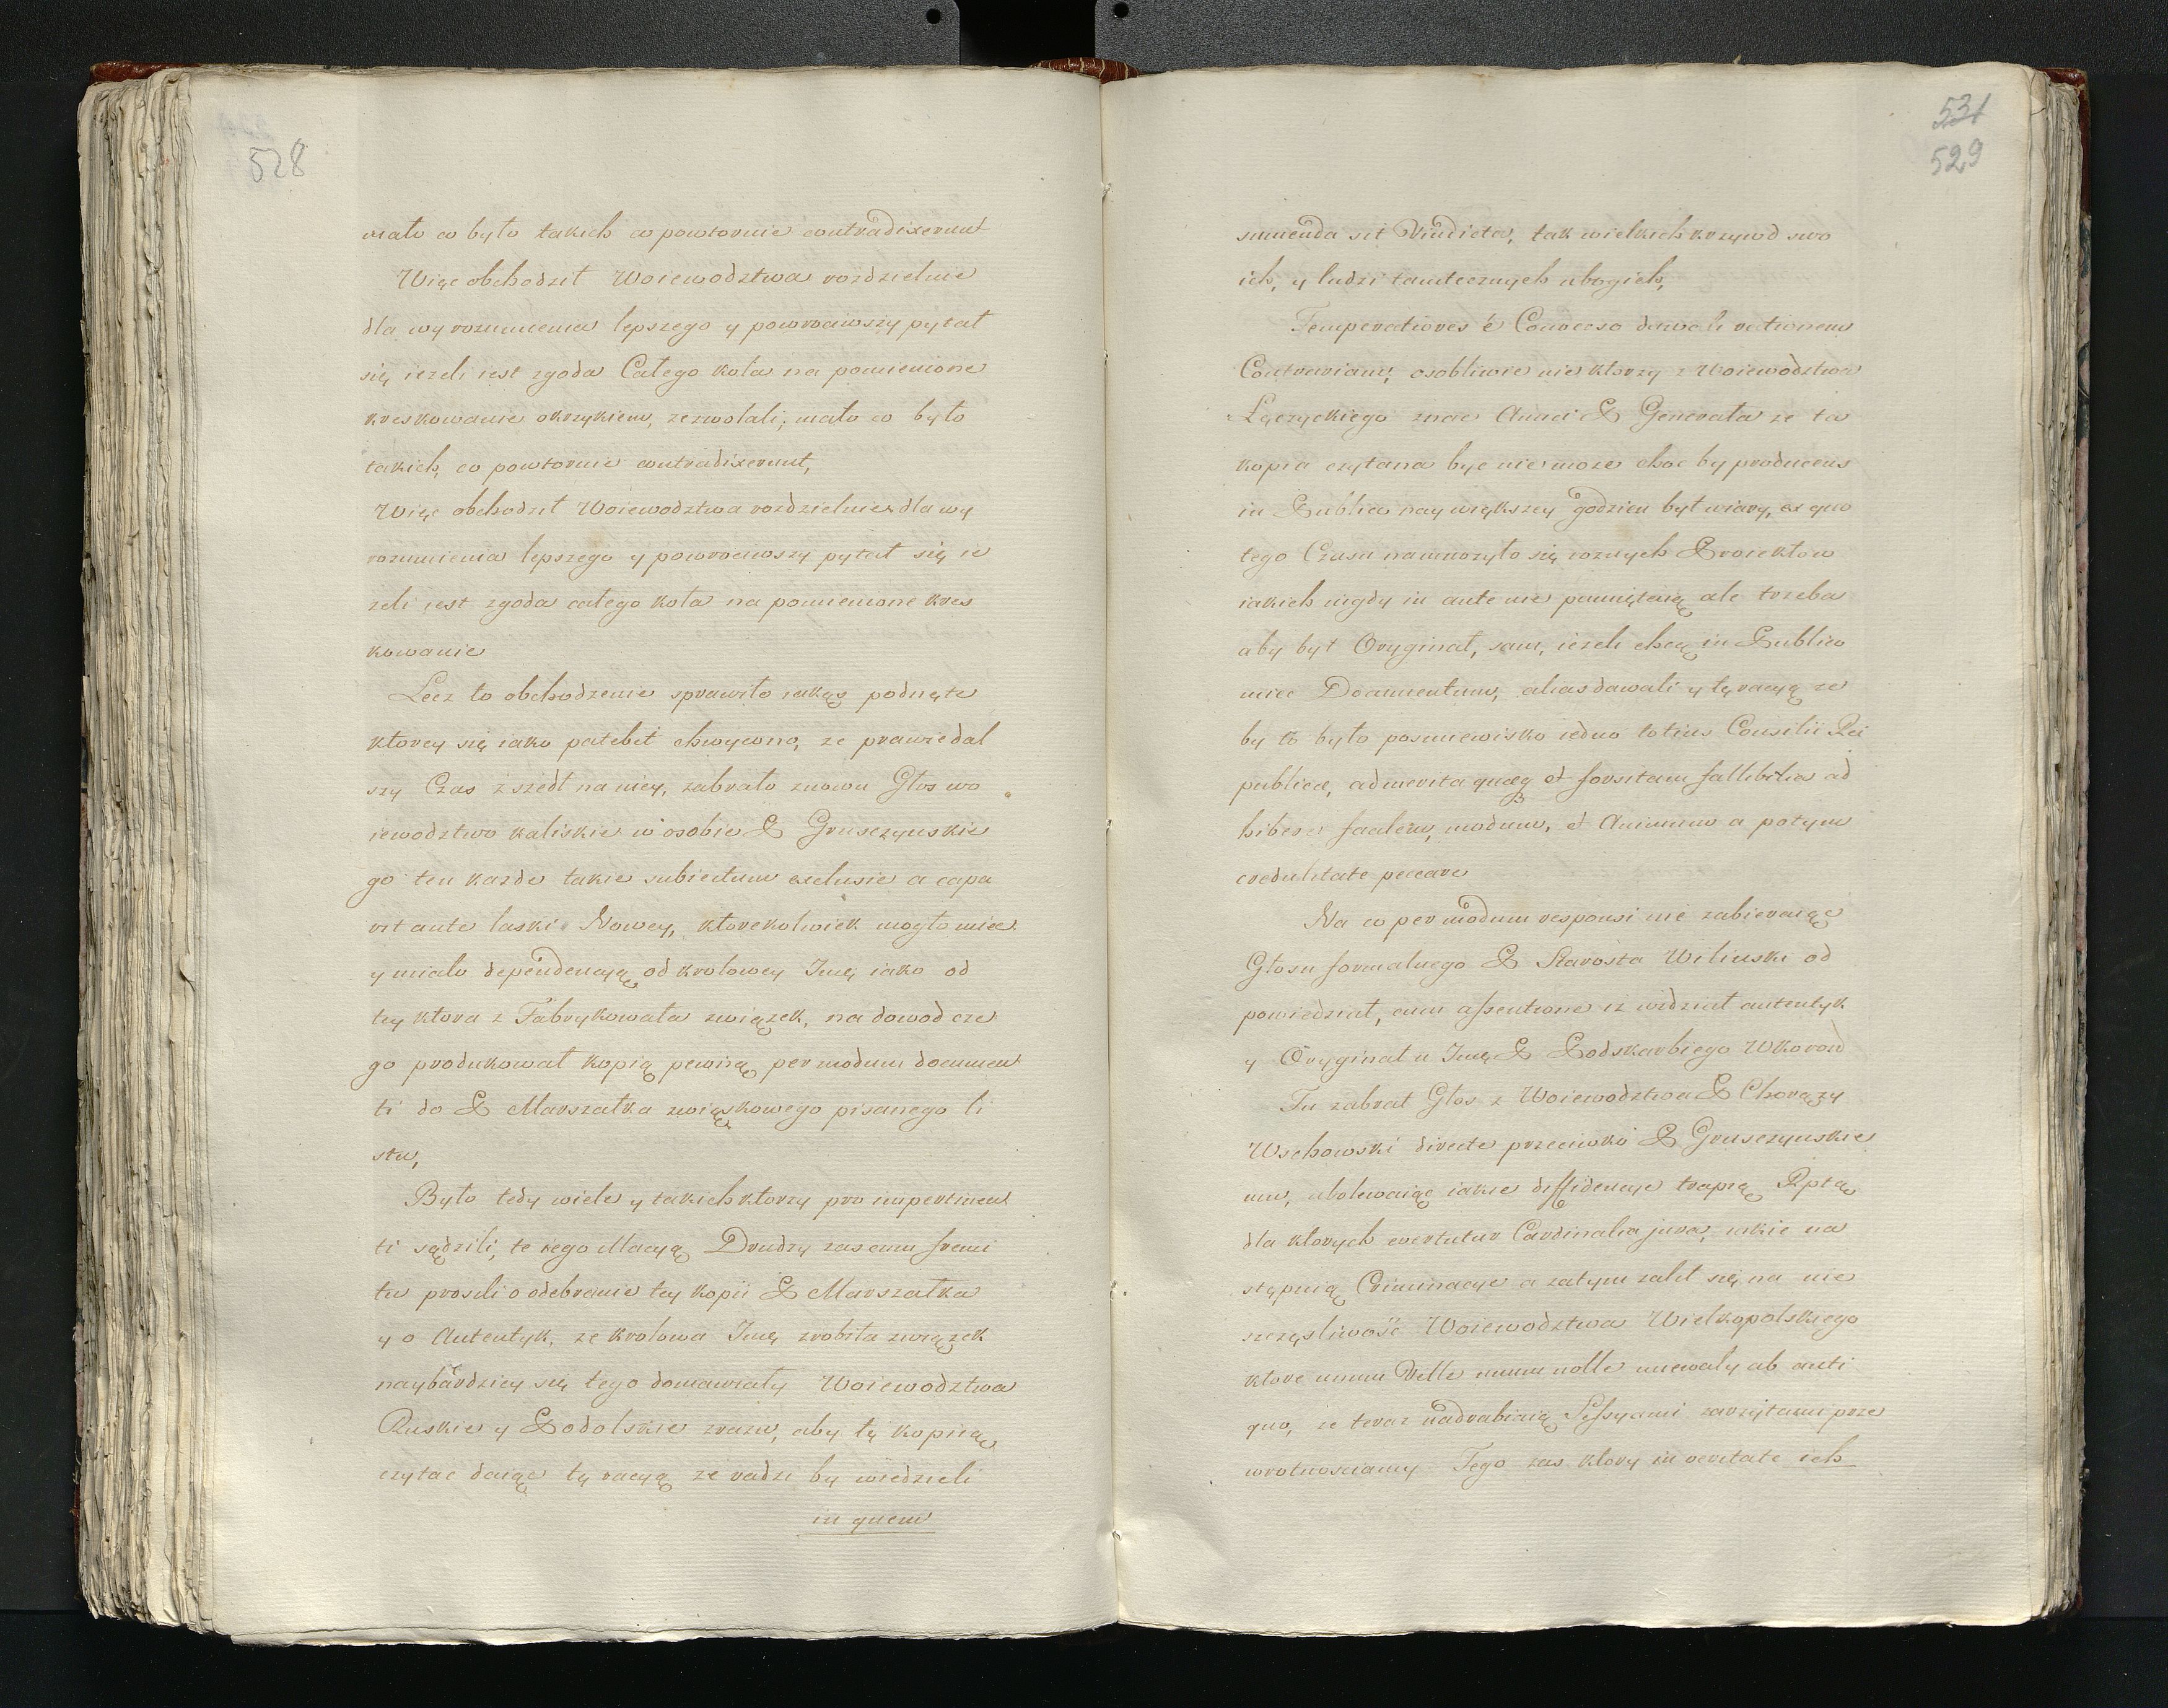 528
mało co było takich co powtornie contradixerunt
Więc obchodził Woiewodztwa rozdzielnie
dla wyrozumienia lepszego y powrociwszy pytał
się iezeli iest zgoda Całego koła na pomienione
kreskowanie okrzykiem, zezwolali, mało co było
takich, co powtornie contradixerunt,
Więc obchodził Woiewodztwa rozdzielnie dla wy
rozumienia lepszego y powrociwszy pytał się ie
zeli iest zgoda całego koła na pomienione kres
kowanie
Lecz to obchodzenie sprawiło iakąś podnętę
ktorey się iako patebit chwycono, ze prawie dal
szy Czas zszedł na niey, zabrało znowu Głos wo
iewodztwo kaliskie w osobie P Gruszczynskie
go ten kazde takie subiectum exclusie a capa
rit ante laski Nowey, ktorekolwiek mogło miec
y miało dependencyą od krolowey Jmę iako od
tey ktora z Fabrykowała związek, na dowod cze
go produkował kopią pewną per modum documen
ti do P Marszałka związkowego pisanego li
stu,
Było tedy wiele y takich ktorzy pro impertinen
ti sądzili, te iego Racyą Drudzy zas cum fremi
tu prosili o odebranie tey kopii P Marszałka
y o Autentyk, ze krolowa Jmę zrobiła związek
naybardziey się tego domawiały Woiewodztwa
Ruskie y Podolskie zrazu, aby tę kopiią
czytac daiąc tę racyą ze radzi by wiedzieli
in quem
531
529
sumenda sit Vindicta, tak wielkich krzywd swo
ich, y ludzi tamtecznych ubogich,
Temperatiores é Concesso dawali rationem
Contrariam, osobliwie niektorzy z Woiewodztwa
Łęczyckiego P Generała ze ta
kopia czytana byc nie moze choc by producens
in Publico naywiększey godzien był wiary, ex quo
tego Czasu namnozyło się roznych Proiektow
iakich nigdy in ante nie pamiętaią ale trzeba
aby był Oryginał, sam, iezeli chcą in Publico
miec Documentum, alias dawali y tę racyą ze
by to było posmiewisko iedno totius Consilii Rei
publicæ, ad merita quæq et forsitam fallibilia ad
hibere facilem, modum, et Animum a potym
credulitate peccare
Na co per modum responsi nie zabieraiąc
Głosu formalnego P Starosta Wilinski od
powiedział, cum assertione iz widział autentyk
y Oryginał u Jmę P Podskarbiego WKoron
Tu zabrał Głos z Woiewodztwa P Chorązy
Wschowski directe przeciwko P Gruszczynskie
mu, ubolewaiąc iakie diffidencye trapią Rptą
dla ktorych evertutur Cardinalia jura, iakie na
stępuią Criminacye a zatym zalił się na nie
szczęsliwość Woiewodztwa Wielkopolskiego
ktore unum Velle unum nolle miewały ab anti
quo, ze teraz nadrabiaią Sessyami zarzytami prze
wrotnosciamy Tego zas ktory in veritate ich